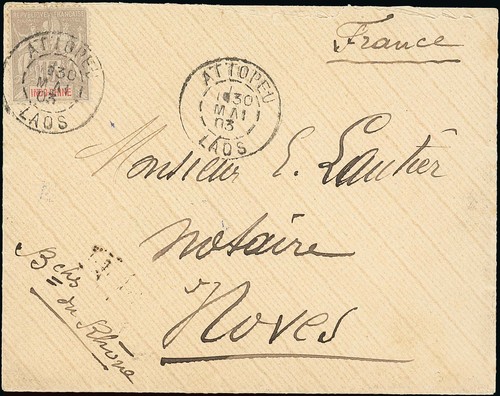 INDO-CHINE
ATTOPEU
30
MAI
03
LAOS
ATTOPEU
30
MAI
03
LAOS
France
Monsieur E. Lautier
notaire
Noves
Bches
du Rhône